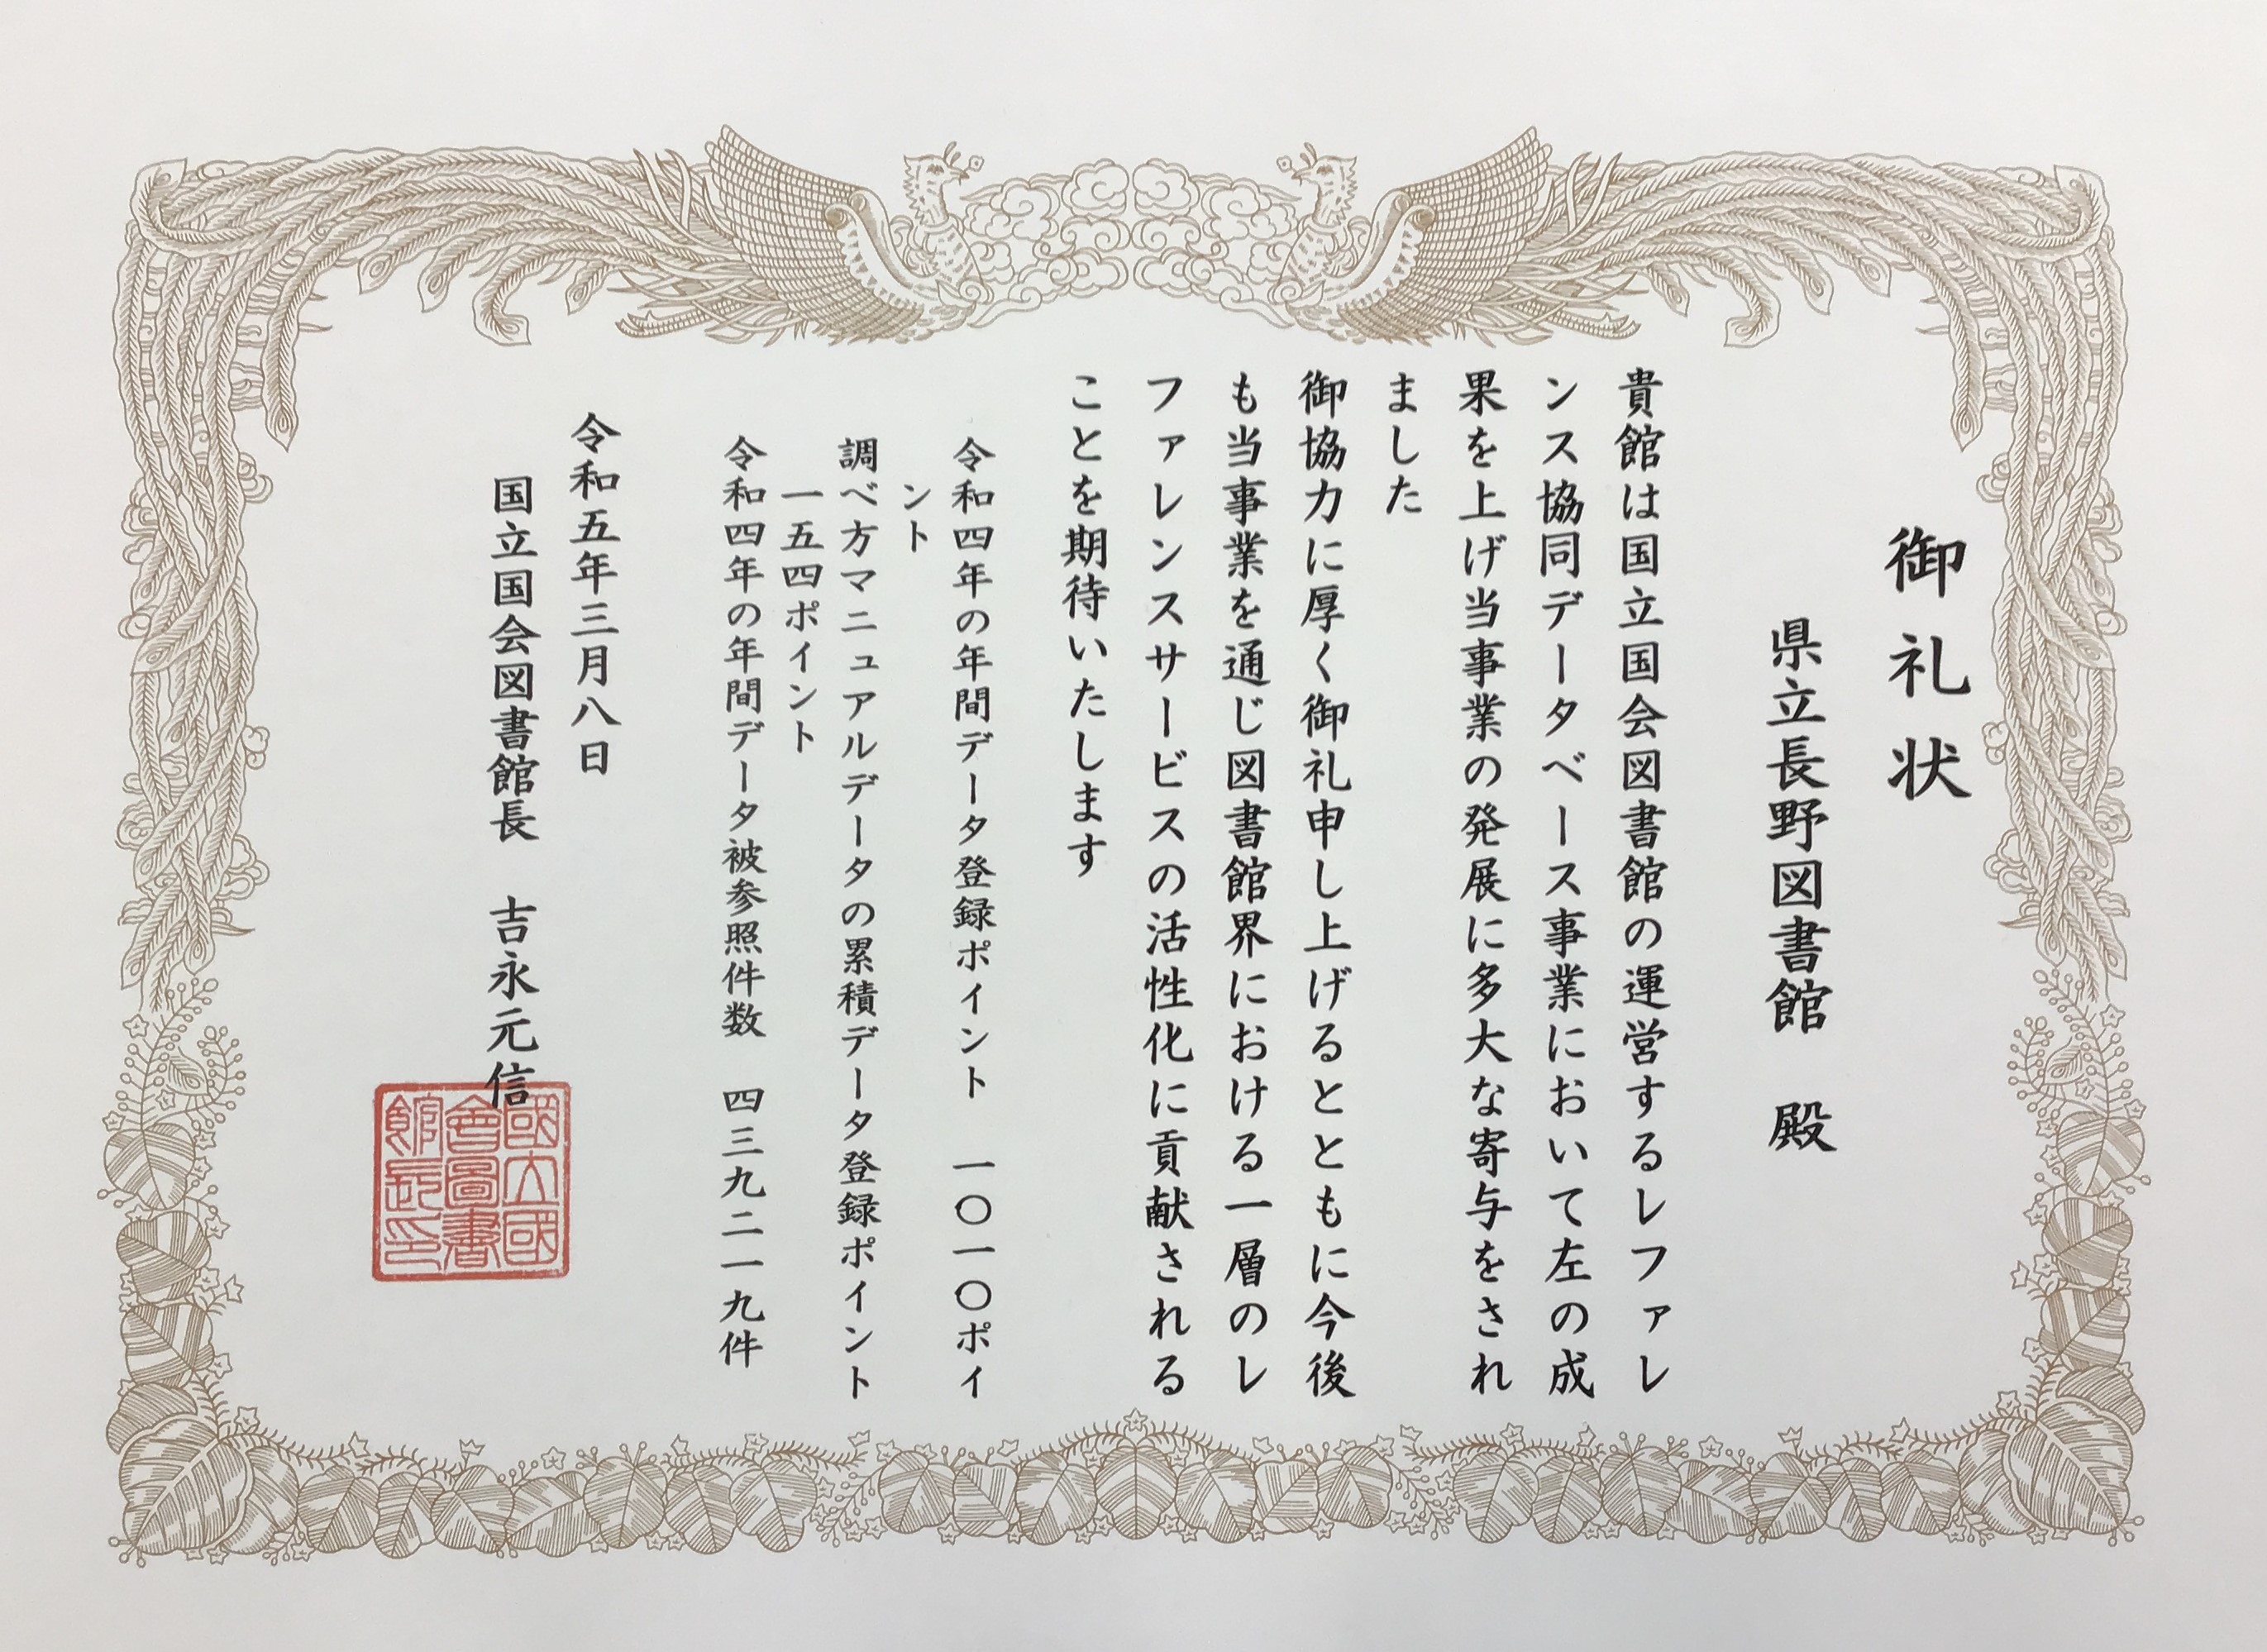 御礼状
県立長野図書館　殿
貴館は国立国会図書館の運営するレファレ
ンス協同データベース事業において左の成
果を上げ当事業の発展に多大な寄与をされ
ました
御協力に厚く御礼申し上げるとともに今後
も当事業を通じ図書館界における一層のレ
ファレンスサービスの活性化に貢献される
ことを期待いたします
令和四年の年間データ登録ポイント　一〇一〇ポイ
ント
調べ方マニュアルデータの累積データ登録ポイント
一五四ポイント
令和四年の年間データ被参照件数　四三九二一九件
令和五年三月八日
国立国会図書館長　吉永元信
國立國
會圖書
館長印